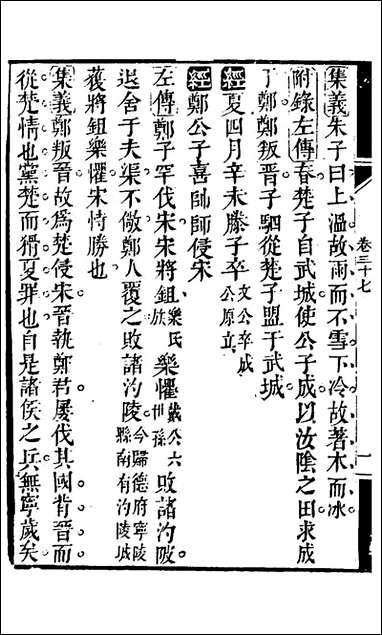 卷三十七
一
集義朱子曰上溫故雨而不雪下冷故著木而冰
附錄左傳春楚子自武城使公子成以汝陰之田求成
于鄭鄭叛晉子駟從楚子盟于武城
經夏四月辛未滕子卒文公卒成公原立
經鄭公子喜帥師侵宋
左傳鄭子罕伐宋宋將鉏樂氏族樂懼戴公六世孫敗諸汋陂
退舍于夫渠不儆鄭人覆之敗諸汋陵今歸德府寧陵縣南有汋陵城
獲將鉏樂懼宋恃勝也
集義鄭叛晉故為楚侵宋晉執鄭君屢伐其國背晉而
從楚情也黨楚而猾夏罪也自是諸侯之兵無寧歲矣